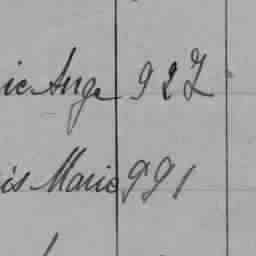 ie Ange 927
is Marie 991